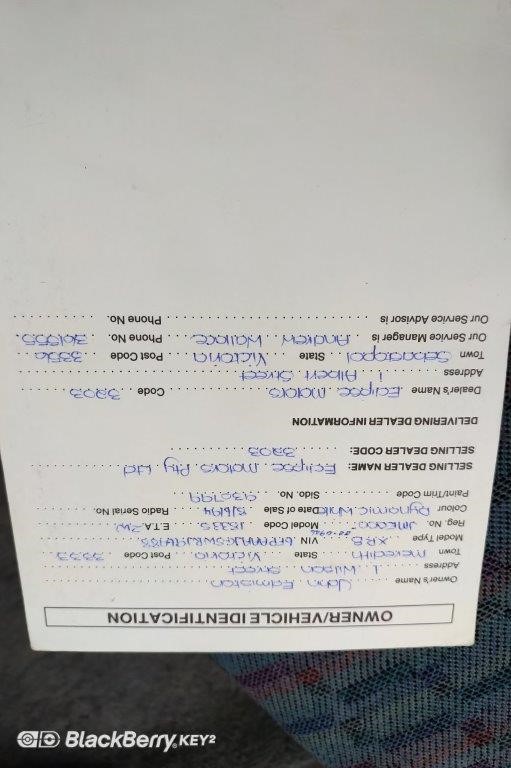 OWNER/VEHICLE IDENTIFICATION
Owner's Name John Edmiston
Address 1 Wilson Street
Town Meredith State Victoria Post Code 3333
Model Type XR8 VIN
Reg. No. Model Code E.T.A.
Colour Dynamic White Date of Sale Radio Serial No.
Paint/Trim Code Sldo. No.
SELLING DEALER NAME: Eclipse Motors Pty Ltd
SELLING DEALER CODE: 3203
DELIVERING DEALER INFORMATION
Dealer's Name Eclipse Motors Code 3203
Address 1 Albert Street
Town State Victoria Post Code 3356
Our Service Manager is Andrew Wallace Phone No. 361555.
Our Service Advisor is Phone No.
BlackBerry KEY2